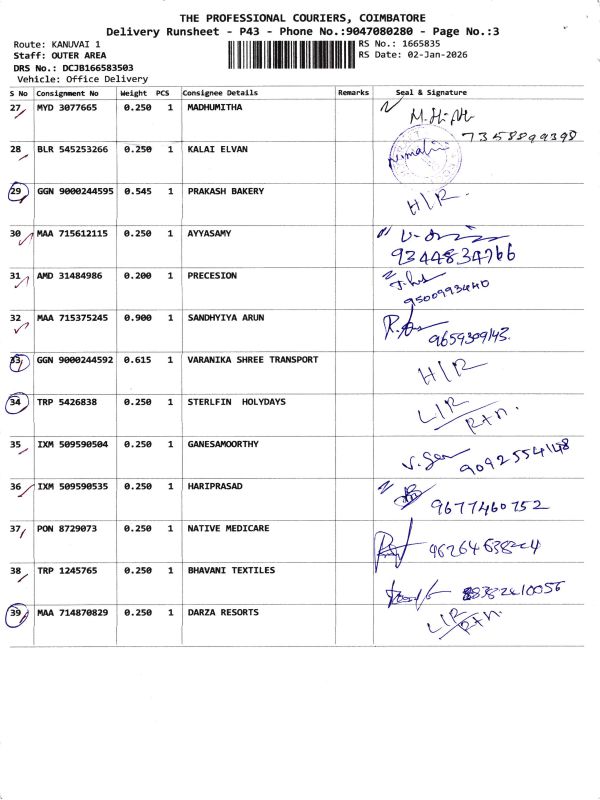 THE PROFESSIONAL COURIERS, COIMBATORE
Delivery Runsheet - P43 - Phone No.:9047080280 - Page No.:3
Route: KANUVAI 1
RS No.: 1665835
Staff: OUTER AREA
RS Date: 02-Jan-2026
DRS No.: DCJB166583503
Vehicle: Office Delivery
S No Consignment No Weight PCS Consignee Details Remarks Seal & Signature
27 MYD 3077665 0.250 1 MADHUMITHA
7358899398
28 BLR 545253266 0.250 1 KALAI ELVAN
29 GGN 9000244595 0.545 1 PRAKASH BAKERY H/R.
30 MAA 715612115 0.250 1 AYYASAMY
9344834766
31 AMD 31484986 0.200 1 PRECESION
9500993440
32 MAA 715375245 0.900 1 SANDHYIYA ARUN
9659309143.
33 GGN 9000244592 0.615 1 VARANIKA SHREE TRANSPORT H/R
34 TRP 5426838 0.250 1 STERLFIN HOLYDAYS L/R
Rtn.
35 IXM 509590504 0.250 1 GANESAMOORTHY
36 IXM 509590535 0.250 1 HARIPRASAD
9677460752
37 PON 8729073 0.250 1 NATIVE MEDICARE
38 TRP 1245765 0.250 1 BHAVANI TEXTILES
39 MAA 714870829 0.250 1 DARZA RESORTS L/R
Rtn.